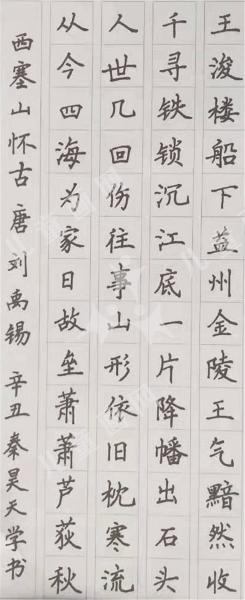 王浚楼船下益州金陵王气黯然收
千寻铁锁沉江底一片降幡出石头
人世几回伤往事山形依旧枕寒流
从今四海为家日故垒萧萧芦荻秋
西塞山怀古 唐 刘禹锡 辛丑 秦昊天学书